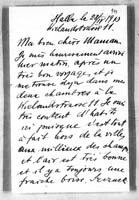 Halle le 29/4 1913
Wielandstrasse 11.
Ma bien chère Maman.
Je suis heureusement arrivé
hier matin, après un
très bon voyage, et je
me trouve dans mes
deux chambres à la
Wielandstrasse 11. Je suis
très content d'habiter
ici puisque c'est tout
à fait hors de la ville,
aux milieux des champs
et l'air est très bonne
et il y a toujours une
fraiche brise.